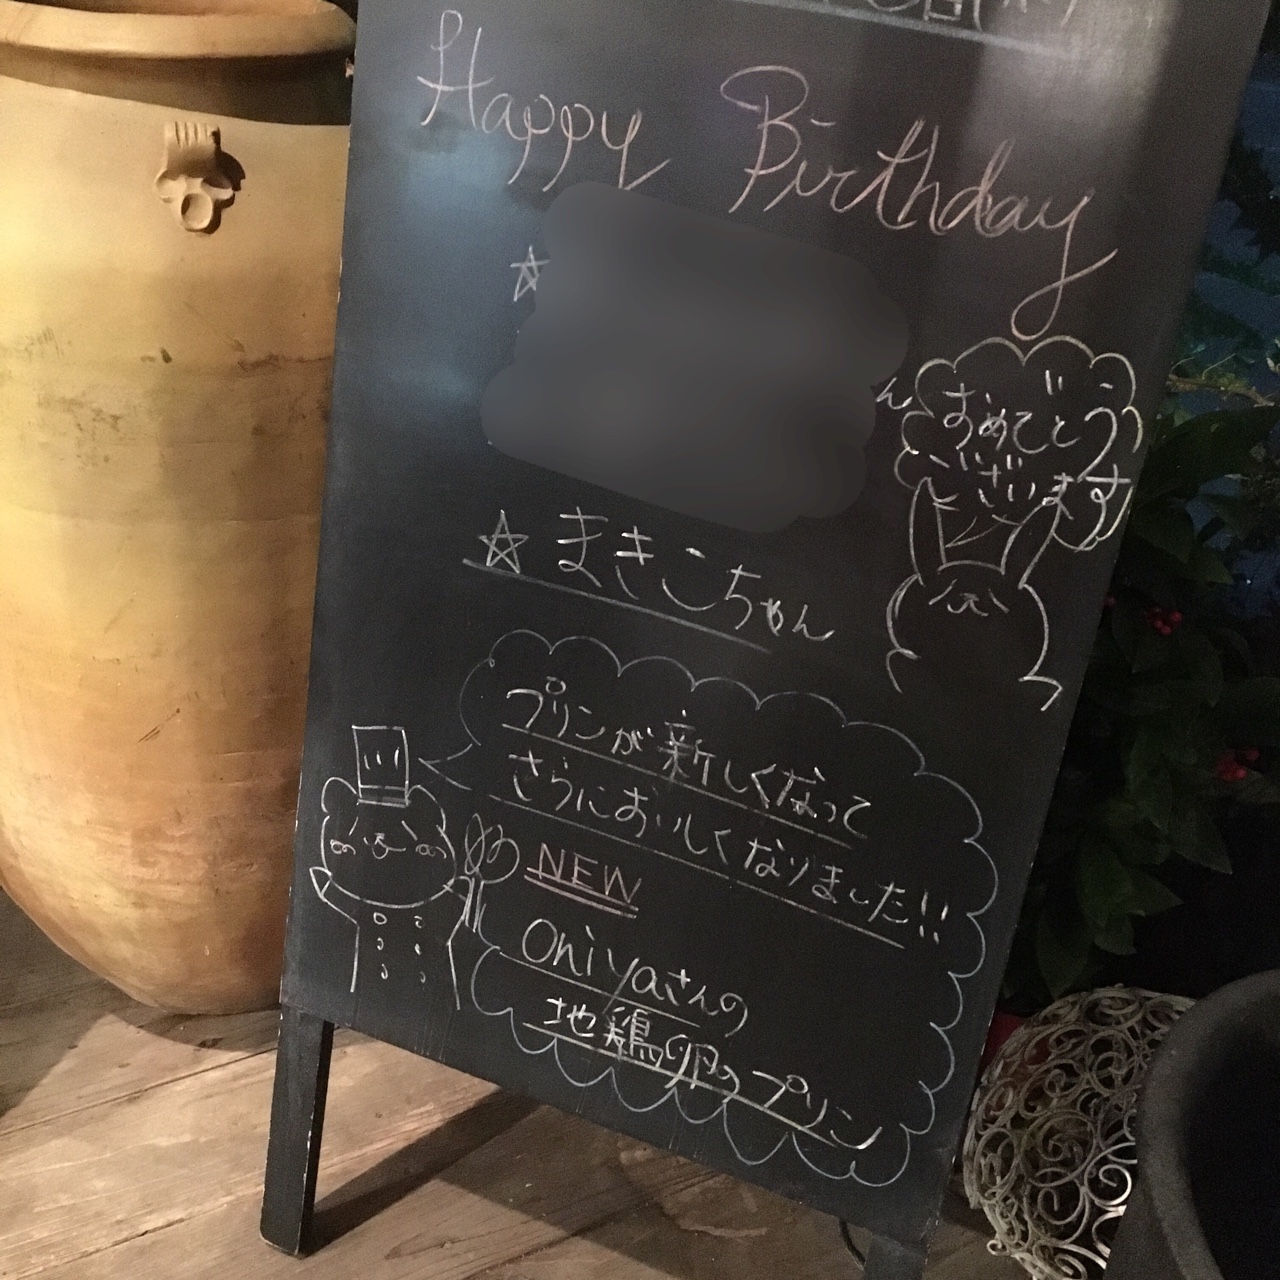 Happy Birthday
☆
ん
おめでとう
ございます
☆まきこちゃん
プリンが新しくなって
さらにおいしくなりました!!
NEW
Oniyaさんの
地鶏卵のプリン